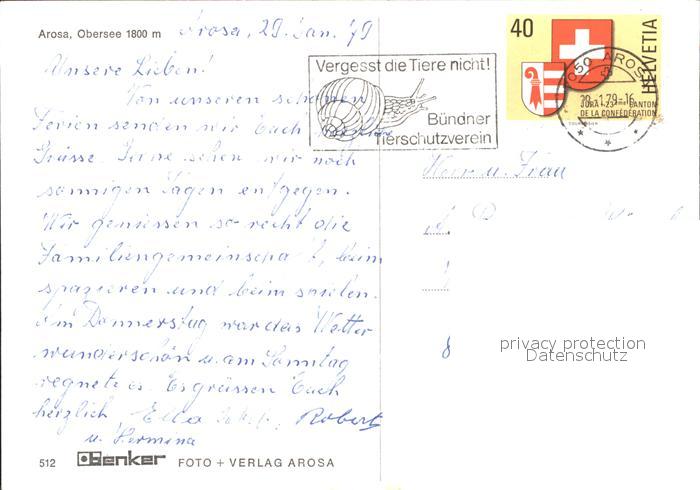 Arosa, Obersee 1800 m
Arosa, 29. Jan. 79
Unsere Lieben!
Von unseren schönen
Ferien senden wir Euch herzliche
Grüsse. Gerne sehen wir noch
sonnigen Tagen entgegen.
Wir geniessen so recht die
Familiengemeinschaft, beim
spazieren und beim spielen.
Am Donnerstag war das Wetter
wunderschön u. am Sonntag
regnete es. Es grüssen Euch
herzlich Robert
u. Hermina
512 Genker FOTO + VERLAG AROSA
Vergesst die Tiere nicht!
Bündner
Tierschutzverein
40
HELVETIA
7050 AROSA
29.-1.79-16
JURA · 23me CANTON
DE LA CONFÉDÉRATION
Herr u. Frau
privacy protection
Datenschutz